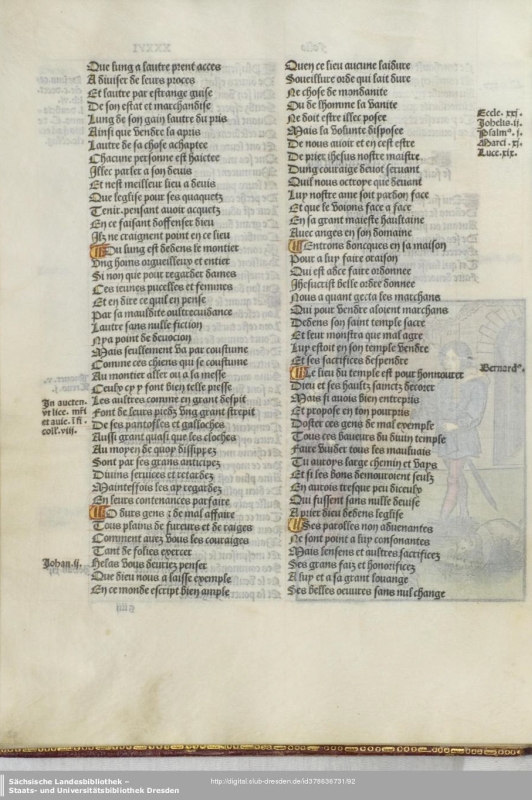 Que lung a lautre prent acces
A diviser de leurs proces
Et lautre par estrange guise
De son estat et marchandise
Lung de son gain lautre du pris
Ainsi que vendre la apris
Lautre de sa chose achaptee
Chacune personne est haictee
Illec parler a son devis
Et nest meilleur lieu a devis
Que leglise pour ses quaquetz
Tenir pensant avoir acquetz
En ce faisant doffenser dieu
Ilz ne craignent point en ce lieu
Ou lung est dedens le monstier
Ung homs orgueilleux et entier
Si non que pour regarder dames
Ces ieunes pucelles et femmes
Et en dire ce quil en pense
Par sa mauldite oultrecuidance
Lautre sans nulle fiction
Nya point de devocion
Mais seullement va par coustume
Comme ces chiens qui se coustume
Au monstier aller ou a la messe
Ceulx cy y font bien telle presse
Les aultres comme en grant despit
Font de leurs piedz ung grant strepit
De ses pantofles et galloches
Aussi grant quasi que les cloches
Au moyen de quoy dissippez
Sont par ses grans anticipez
Divins services et retardez
Maintessois les ay regardez
En leurs contenances parfaire
O durs gens z de mal affaire
Tous plains de fureurs et de raiges
Comment avez vous les couraiges
Tant de folies exercer
Helas vous devriez penser
Que dieu nous a laisse exemple
En ce monde escript bien ample
In aucten.
ut lice. mr̄i
et avie. i fi.
coll. viii.
Johan. ii.
Quen ce lieu aucune laidure
Soueillure orde qui lait dure
Ne chose de mondanite
Ou de lhomme la vanite
Ne doit estre illec posee
Mais la volunte disposee
De nous avoir et en cest estre
De prier ihesus nostre maistre
Dung couraige devot servant
Quil nous octroye que devant
Luy nostre ame soit pardon face
Et que le voions face a face
En sa grant maieste haultaine
Avec anges en son domaine
Entrons doncques en sa maison
Pour a luy faire oraison
Qui est adce faire ordonnee
Jhesucrist belle ordre donnee
Nous a quant gecta les marchans
Qui pour vendre aloient marchans
Dedens son saint temple sacre
Et leur monstra que mal agre
Luy estoit en son temple vendre
Et ses sacrifices despendre
Le lieu du temple est pour honnourer
Dieu et ses haultz sainctz decorer
Mais si avois bien entrepris
Et propose en ton pourpris
Doster ces gens de mal exemple
Tous ces baveurs du divin temple
Faire vuider tous les maulvais
Tu auroys large chemin et vays
Et si les bons demouroient seulz
En aurois tresque peu diceulx
Qui fussent sans nulle devise
A prier dieu dedens leglise
Ses parolles non advenantes
Ne sont point a luy consonantes
Mais lensens et aultres sacrifices
Ses grans faiz et honorifices
A luy et a sa grant louange
Ses belles oeuvres sans nul change
Eccle. xxi.
Johelis. ii.
Psalmo. i.
Marci. xi.
Luce. xix.
Bernardo.
Sächsische Landesbibliothek –
Staats- und Universitätsbibliothek Dresden
http://digital.slub-dresden.de/id378636731/92